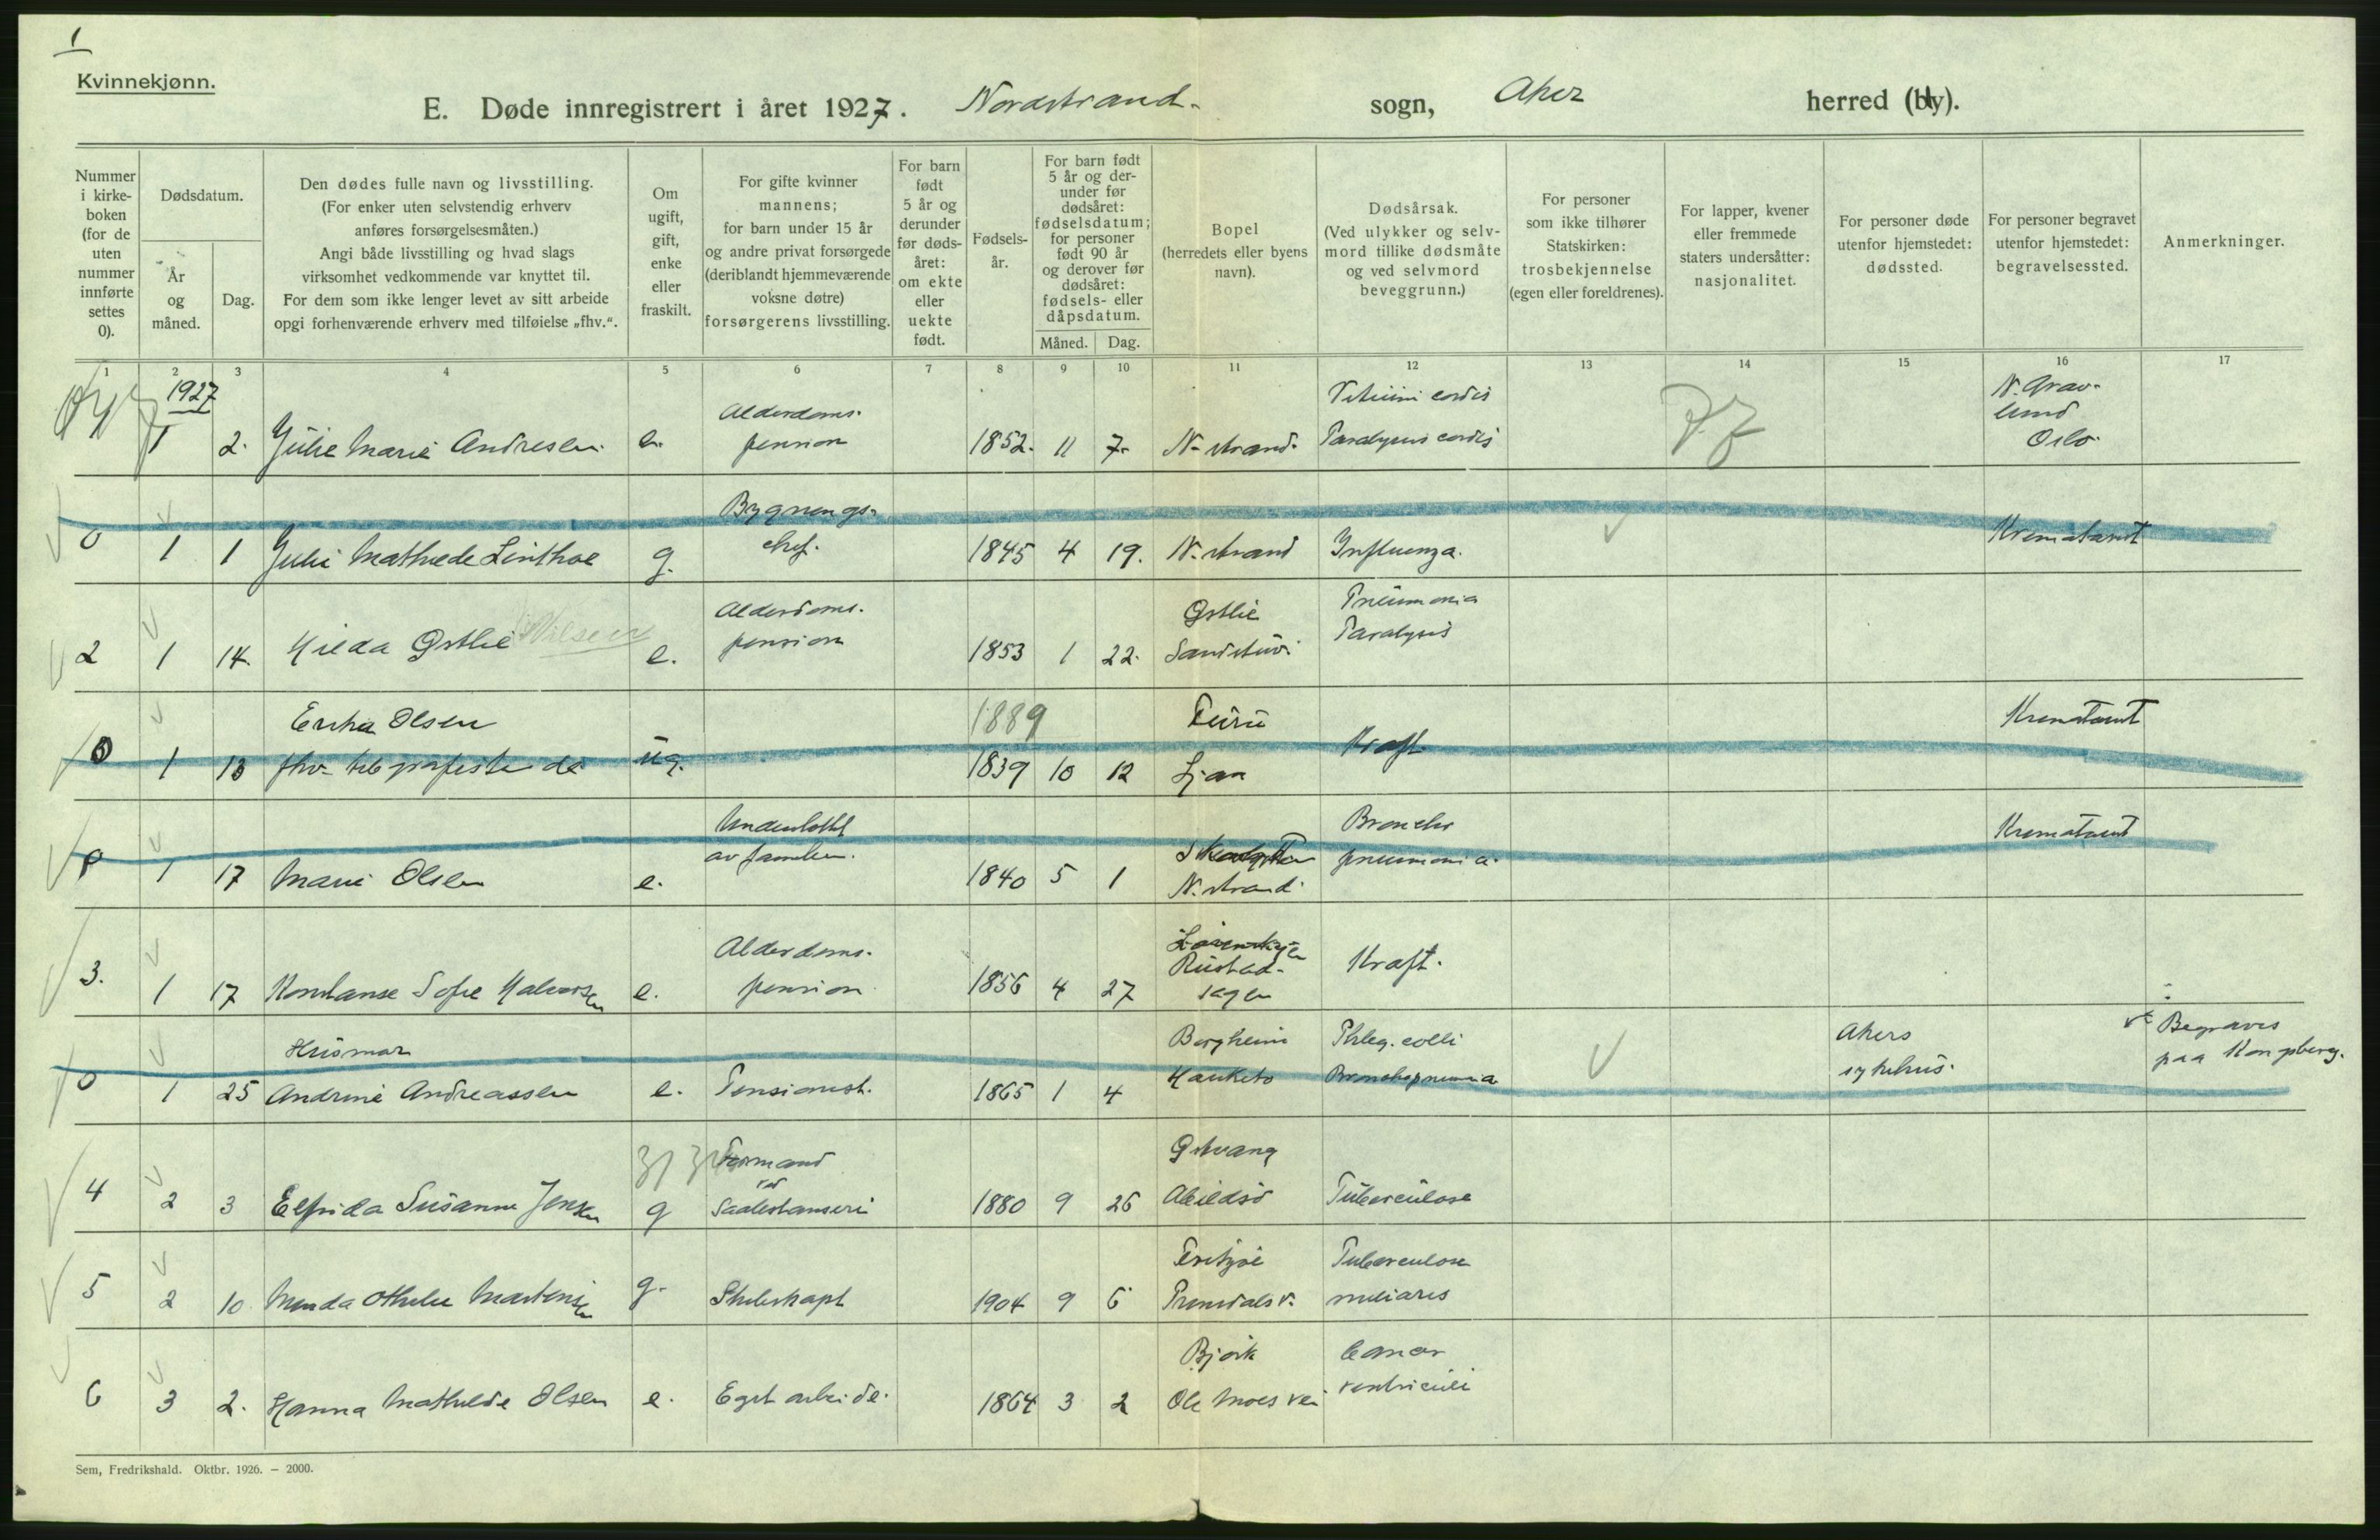 1
Kvinnekjønn.
E. Døde innregistrert i året 1927. Nordstrand. sogn, Aker herred (by).
Nummer i kirke-boken (for de uten nummer innførte settes 0).
Dødsdatum.
År og måned.
Dag.
Den dødes fulle navn og livsstilling.
(For enker uten selvstendig erhverv
anføres forsørgelsesmåten.)
Angi både livsstilling og hvad slags
virksomhet vedkommende var knyttet til.
For dem som ikke lenger levet av sitt arbeide
opgi forhenværende erhverv med tilføielse „fhv.“.
Om ugift, gift, enke eller fraskilt.
For gifte kvinner
mannens;
for barn under 15 år
og andre privat forsørgede
(deriblandt hjemmeværende
voksne døtre)
forsørgerens livsstilling.
For barn født 5 år og derunder før døds-året: om ekte eller uekte født.
Fødsels-år.
For barn født
5 år og der-
under før
dødsåret:
fødselsdatum;
for personer
født 90 år
og derover før
dødsåret:
fødsels- eller
dåpsdatum.
Måned.
Dag.
Bopel
(herredets eller byens
navn).
Dødsårsak.
(Ved ulykker og selv-
mord tillike dødsmåte
og ved selvmord
beveggrunn.)
For personer
som ikke tilhører
Statskirken:
trosbekjennelse
(egen eller foreldrenes).
For lapper, kvener
eller fremmede
staters undersåtter:
nasjonalitet.
For personer døde
utenfor hjemstedet:
dødssted.
For personer begravet
utenfor hjemstedet:
begravelsessted.
Anmerkninger.
1 2 3 4 5 6 7 8 9 10 11 12 13 14 15 16 17
1927
1 2. Julie Marie Andresen. e. Alderdoms-pension 1852. 11 7. N-strand. Vitium cordis Paralysis cordis N. Gravlund Oslo.
0 1 1 Julie Mathilde Linthoe g. Bygnings-chef. 1845 4 19. N.strand Influenza. Krematoriet
2 1 14. Hilda Østlie Nilsen e. Alderdoms-pension 1853 1 22. Østlie Pneumonia Paralysis
0 1 13 Olsen fhv. ug. 1889 1839 10 12 Furu Ljan Kræft. Krematoriet
0 1 17 Marie Olsen e. Underholdt av familien. 1840 5 1 N.strand. Broncho pneumonia. Krematoriet
3. 1 17 Konstanse Sofie Halvorsen e. Alderdoms-pension. 1856 4 27 Rustad-sagen Kræft.
0 1 25 Husmor Andrine Andreassen e. Pensionist. 1865 1 4 Bergheim Hauketo Phleg. colli Bronchopneumonia Akers sykehus. Begraves paa Kongsberg.
4 2 3 Elfrida Susanne Jensen g Formand ved 1880 9 26 Østvang Abildsø Tuberculose
5 2 10 Othilie Martinsen g. 1904 9 6 Tuberculose miliaris
6 3 2. Hanna Mathilde Olsen e. Eget arbeide. 1864 3 2 Bjørk Ole Moes vei Cancer ventriculi
Sem, Fredrikshald. Oktbr. 1926. – 2000.